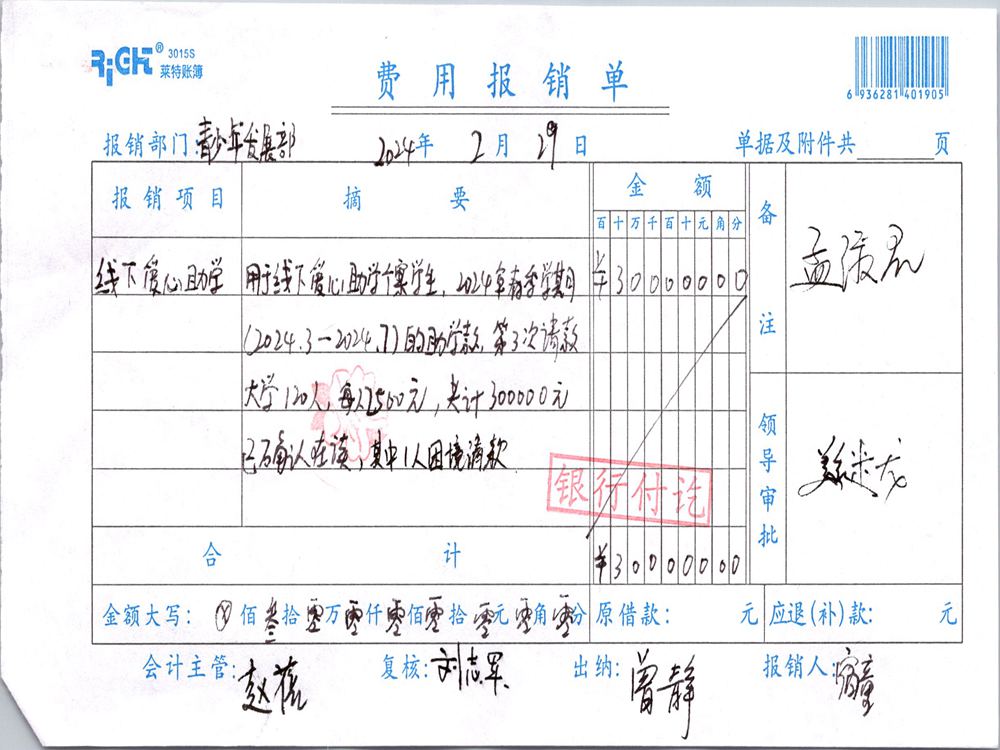 RiGHT® 3015S
莱特账簿
费用报销单
6 936281 401905
报销部门:青少年发展部 2024年2月29日 单据及附件共 页
报销项目 摘要 金额 备注
百十万千百十元角分
线下爱心助学 用于线下爱心助学个案学生,2024年春季学期 ¥30000000
(2024.3—2024.7)的助学款,第3次请款
大学120人,每人2500元,共计300000元
已确认在读,其中1人困境请款
银行付讫
领导审批
合计 ¥30000000
金额大写:ⓧ佰叁拾零万零仟零佰零拾零元零角零分 原借款: 元 应退(补)款: 元
会计主管: 赵蓓 复核:刘志军 出纳:曾静 报销人: